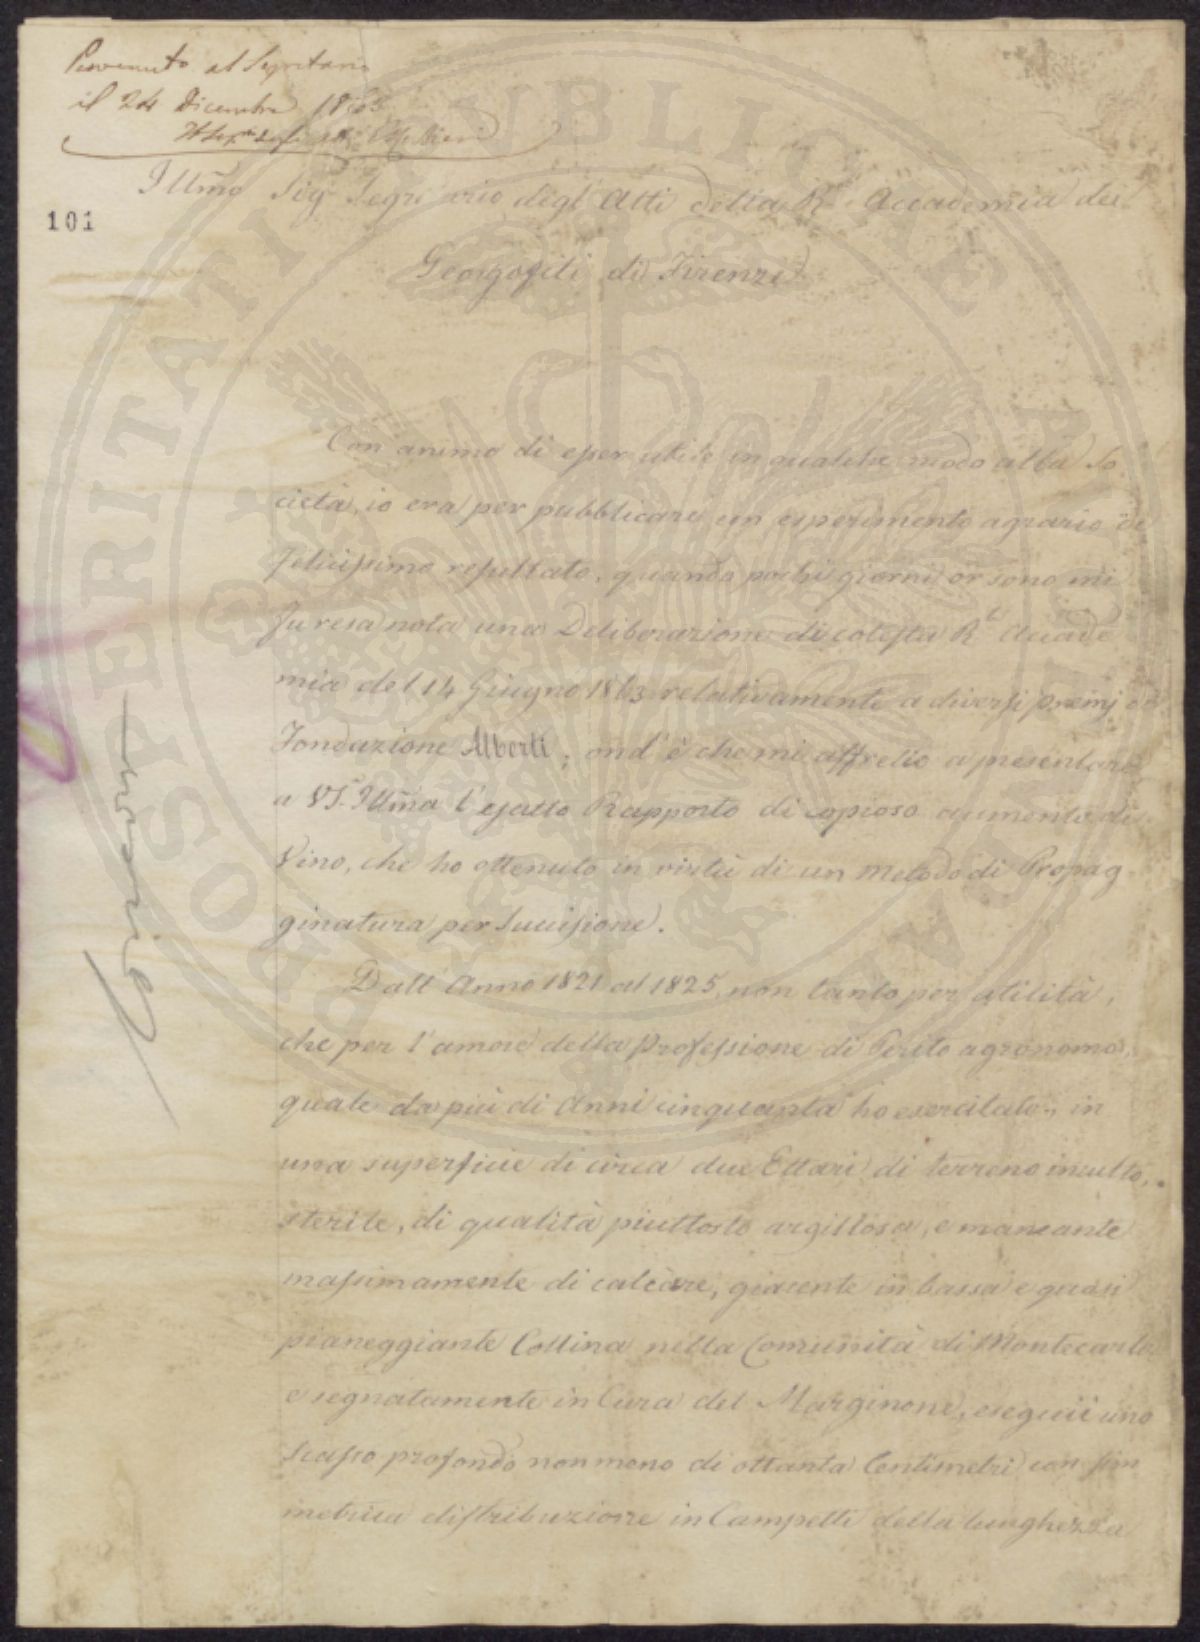 Pervenuto al Segretario
il 24 Dicembre 1863
Il Seg.rio degli Atti
Illmo Sig. Segretario degl'Atti della R. Accademia dei
101
Georgofili di Firenze
Con animo di esser utile in qualche modo alla So
cietà, io era per pubblicare un esperimento agrario di
felicissimo resultato, quando pochi giorni or sono mi
fu resa nota una Deliberazione di cotesta R.e Accade
mia del 14 Giugno 1863 relativamente a diversi premj di
Fondazione Alberti; ond'è che mi affretto a presentare
a VS. Illma l'esatto Rapporto di copioso aumento di
Vino, che ho ottenuto in virtù di un metodo di Propag
ginatura per Succisione.
Dall'Anno 1821 al 1825, non tanto per utilità,
che per l'amore della Professione di Perito agronomo,
quale da più di Anni cinquanta ho esercitato, in
una superficie di circa due Ettari di terreno inculto,
sterile, di qualità piuttosto argillosa, e mancante
massimamente di calcare, giacente in bassa e quasi
pianeggiante Collina nella Comunità di Montecarlo
e segnatamente in Cura del Marginone, eseguii uno
scasso profondo non meno di ottanta Centimetri con sim
metrica distribuzione in Campetti della lunghezza
PROSPERITATI PVBLICAE AVGENDAE